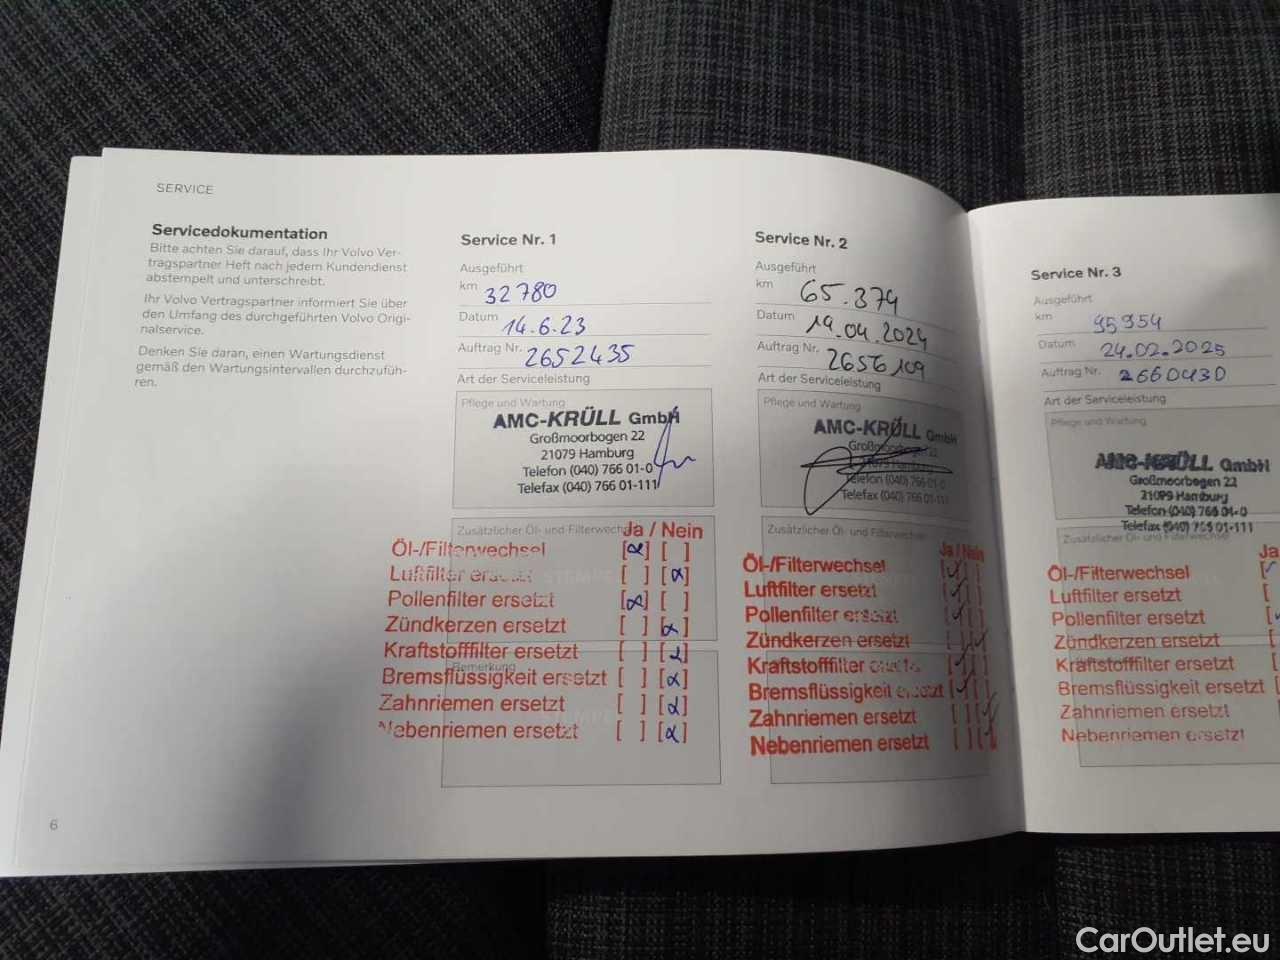 SERVICE
Servicedokumentation
Bitte achten Sie darauf, dass Ihr Volvo Ver-
tragspartner Heft nach jedem Kundendienst
abstempelt und unterschreibt.
Ihr Volvo Vertragspartner informiert Sie über
den Umfang des durchgeführten Volvo Origi-
nalservice.
Denken Sie daran, einen Wartungsdienst
gemäß den Wartungsintervallen durchzufüh-
ren.
6
Service Nr. 1
Ausgeführt
km 32780
Datum 14.6.23
Auftrag Nr. 2652435
Art der Serviceleistung
Pflege und Wartung
AMC-KRÜLL GmbH
Großmoorbogen 22
21079 Hamburg
Telefon (040) 766 01-0
Telefax (040) 766 01-111
Zusätzlicher Öl- und Filterwechsel
Ja / Nein
Öl-/Filterwechsel [x] [ ]
Luftfilter ersetzt [ ] [x]
Pollenfilter ersetzt [x] [ ]
Zündkerzen ersetzt [ ] [x]
Kraftstofffilter ersetzt [ ] [x]
Bemerkung
Bremsflüssigkeit ersetzt [ ] [x]
Zahnriemen ersetzt [ ] [x]
Nebenriemen ersetzt [ ] [x]
Service Nr. 2
Ausgeführt
km 65.379
Datum 19.04.2024
Auftrag Nr. 2656109
Art der Serviceleistung
Pflege und Wartung
AMC-KRÜLL GmbH
Großmoorbogen 22
21079 Hamburg
Telefon (040) 766 01-0
Telefax (040) 766 01-111
Zusätzlicher Öl- und Filterwechsel
Ja / Nein
Öl-/Filterwechsel [✓] [ ]
Luftfilter ersetzt [✓] [ ]
Pollenfilter ersetzt [✓] [ ]
Zündkerzen ersetzt [ ] [✓]
Kraftstofffilter ersetzt [✓] [ ]
Bremsflüssigkeit ersetzt [✓] [ ]
Zahnriemen ersetzt [ ] [✓]
Nebenriemen ersetzt [ ] [✓]
Service Nr. 3
Ausgeführt
km 95954
Datum 24.02.2025
Auftrag Nr. 2660430
Art der Serviceleistung
Pflege und Wartung
AMC-KRÜLL GmbH
Großmoorbogen 22
21079 Hamburg
Telefon (040) 766 01-0
Telefax (040) 766 01-111
Zusätzlicher Öl- und Filterwechsel
Ja
Öl-/Filterwechsel [✓
Luftfilter ersetzt [
Pollenfilter ersetzt [
Zündkerzen ersetzt [
Kraftstofffilter ersetzt [
Bremsflüssigkeit ersetzt [
Zahnriemen ersetzt
Nebenriemen ersetzt
CarOutlet.eu